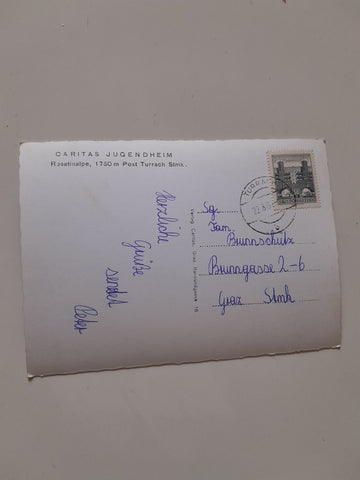 CARITAS JUGENDHEIM
Rosatinalpe, 1750 m Post Turrach Stmk.
Herzliche
Grüße
sendet
Peter
Verlag Caritas, Graz
16
TURRA
22.8
Sg.
Fam.
Brunnschutz
Brunngasse 2-6
Graz Stmk